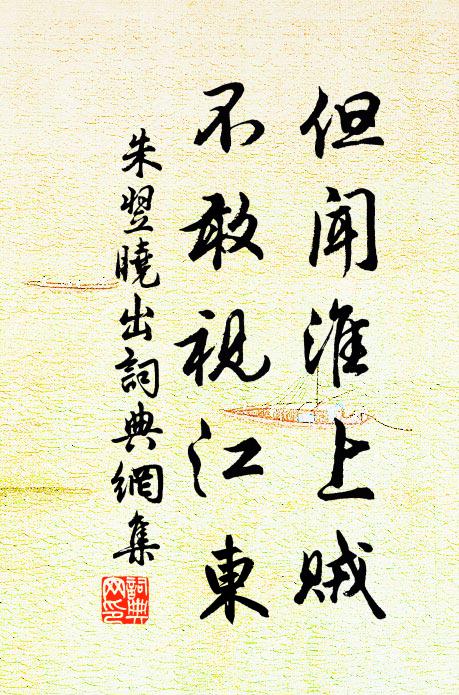 但聞淮上賊
不敢視江東
朱翌曉出詞典網集
詞典網印